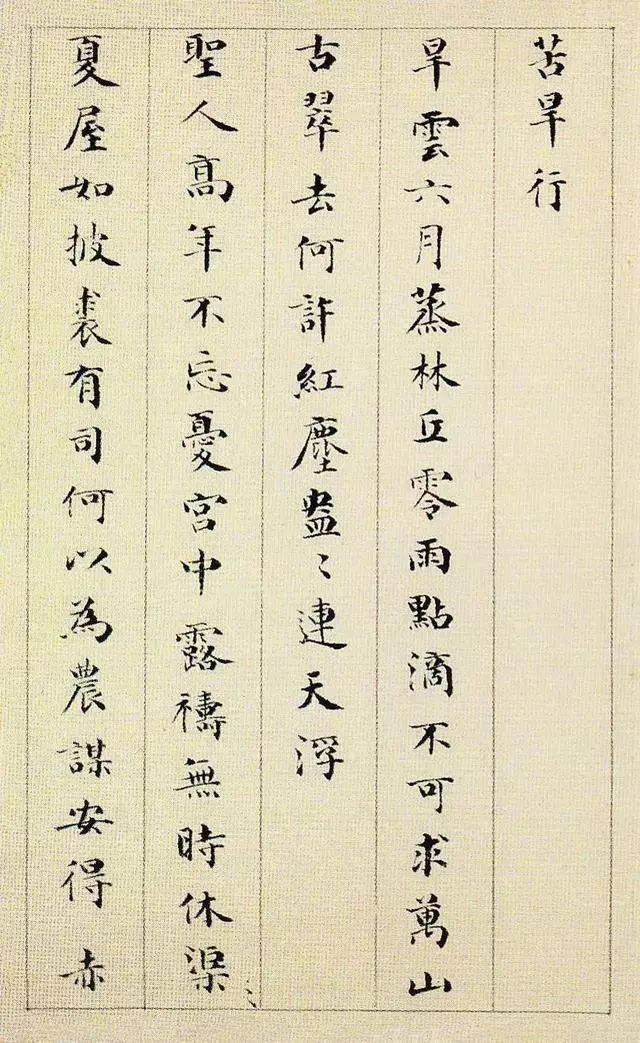 苦旱行
旱雲六月蒸林丘零雨點滴不可求萬山
古翠去何許紅塵盎〻連天浮
聖人高年不忘憂宮中露禱無時休渠〻
夏屋如披裘有司何以為農謀安得赤